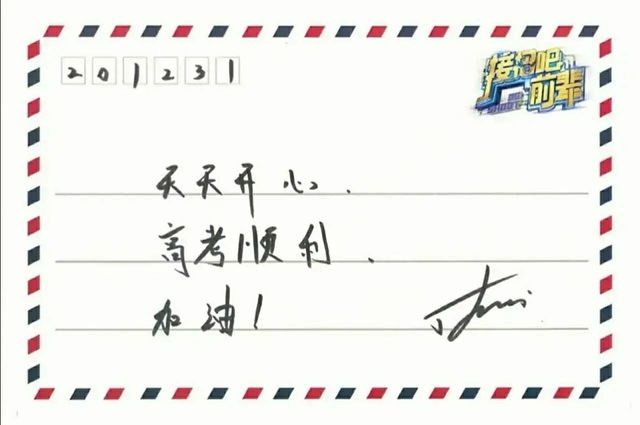 201231
接招吧
前辈
天天开心.
高考顺利.
加油!